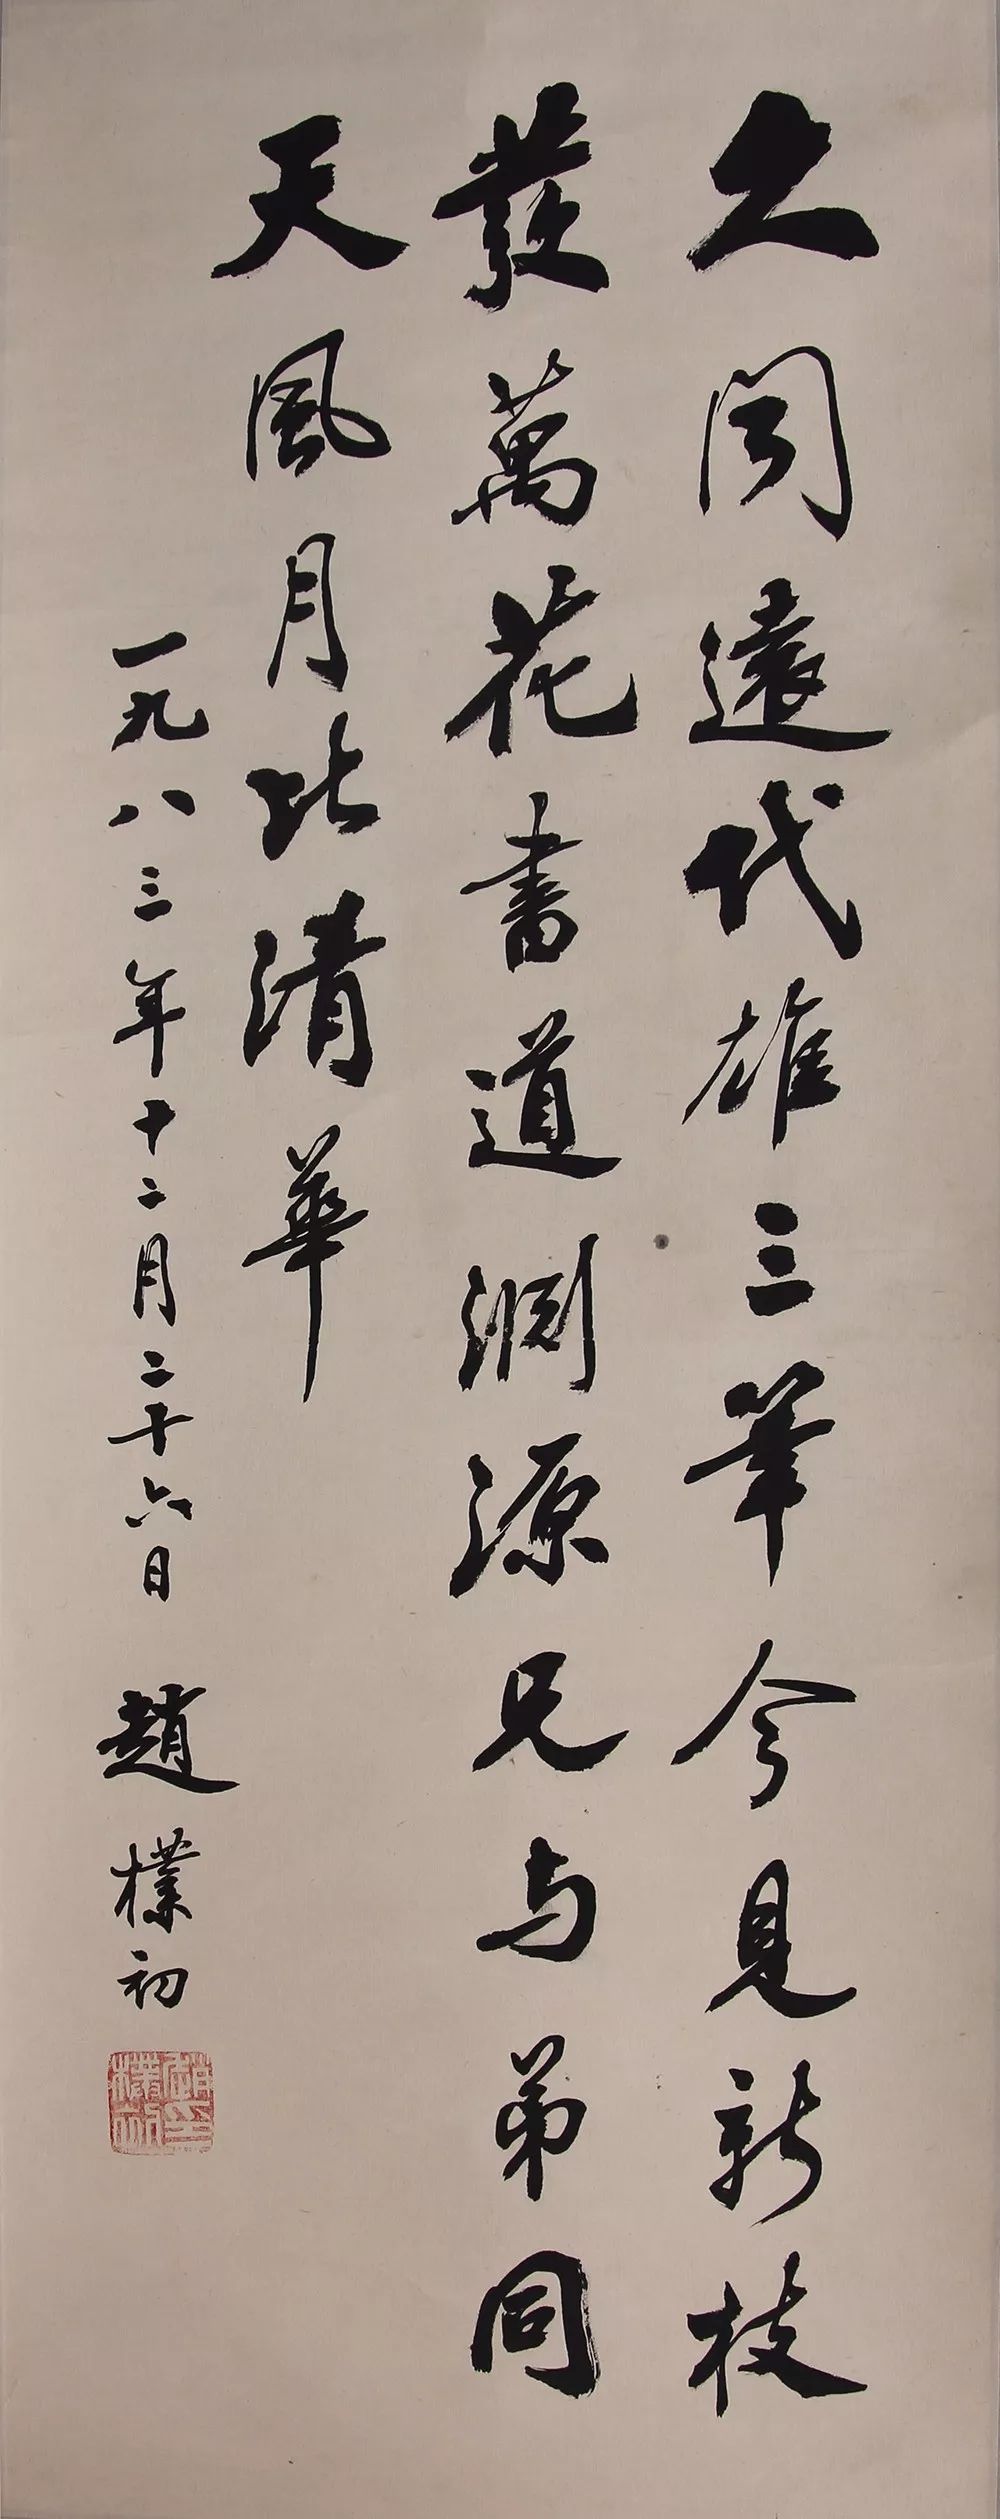 久聞遠代雄三筆今見新枝
發萬花書道淵源兄与弟同
天風月比清華
一九八三年十二月二十六日 趙樸初
趙樸初印